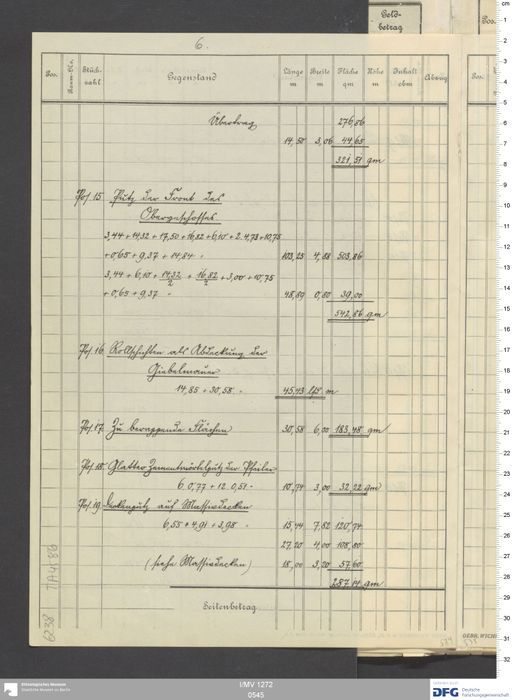 6.
Pos. Raum-No. Stück-zahl Gegenstand Länge m Breite m Fläche qm Höhe m Inhalt cbm Abzug
Geld-betrag
Pos.
Pos.
Übertrag 276,86
14,50 3,06 44,65
321,51 qm
Pos. 15 Putz der Front des
Obergeschosses
3,44 + 14,32 + 17,50 + 16,82 + 6,10 + 2·4,73 + 10,75
+ 0,65 + 9,37 + 14,84 = 103,25 4,88 503,86
3,44 + 6,10 + 14,32/2 + 16,82/2 + 3,00 + 10,75
+ 0,65 + 9,37 = 48,89 0,80 39,00
542,86 qm
Pos. 16 Rollschichten als Abdeckung der
Giebelmauer
14,85 + 30,58 = 45,43 lfd m
Pos. 17 Zu berappende Flächen 30,58 6,00 183,48 qm
Pos. 18 Glatter Zementmörtelputz der Pfeiler
6·0,77 + 12·0,51 = 10,74 3,00 32,22 qm
Pos. 19 Deckenputz auf Massivdecken
6,55 + 4,91 + 3,98 = 15,44 7,82 120,74
27,20 4,00 108,80
(siehe Massivdecken) 18,00 3,20 57,60
287,14 qm
Seitenbetrag
6238 TA 4586
Ethnologisches Museum
Staatliche Museen zu Berlin
I/MV 1272
0545
DFG Deutsche
Forschungsgemeinschaft